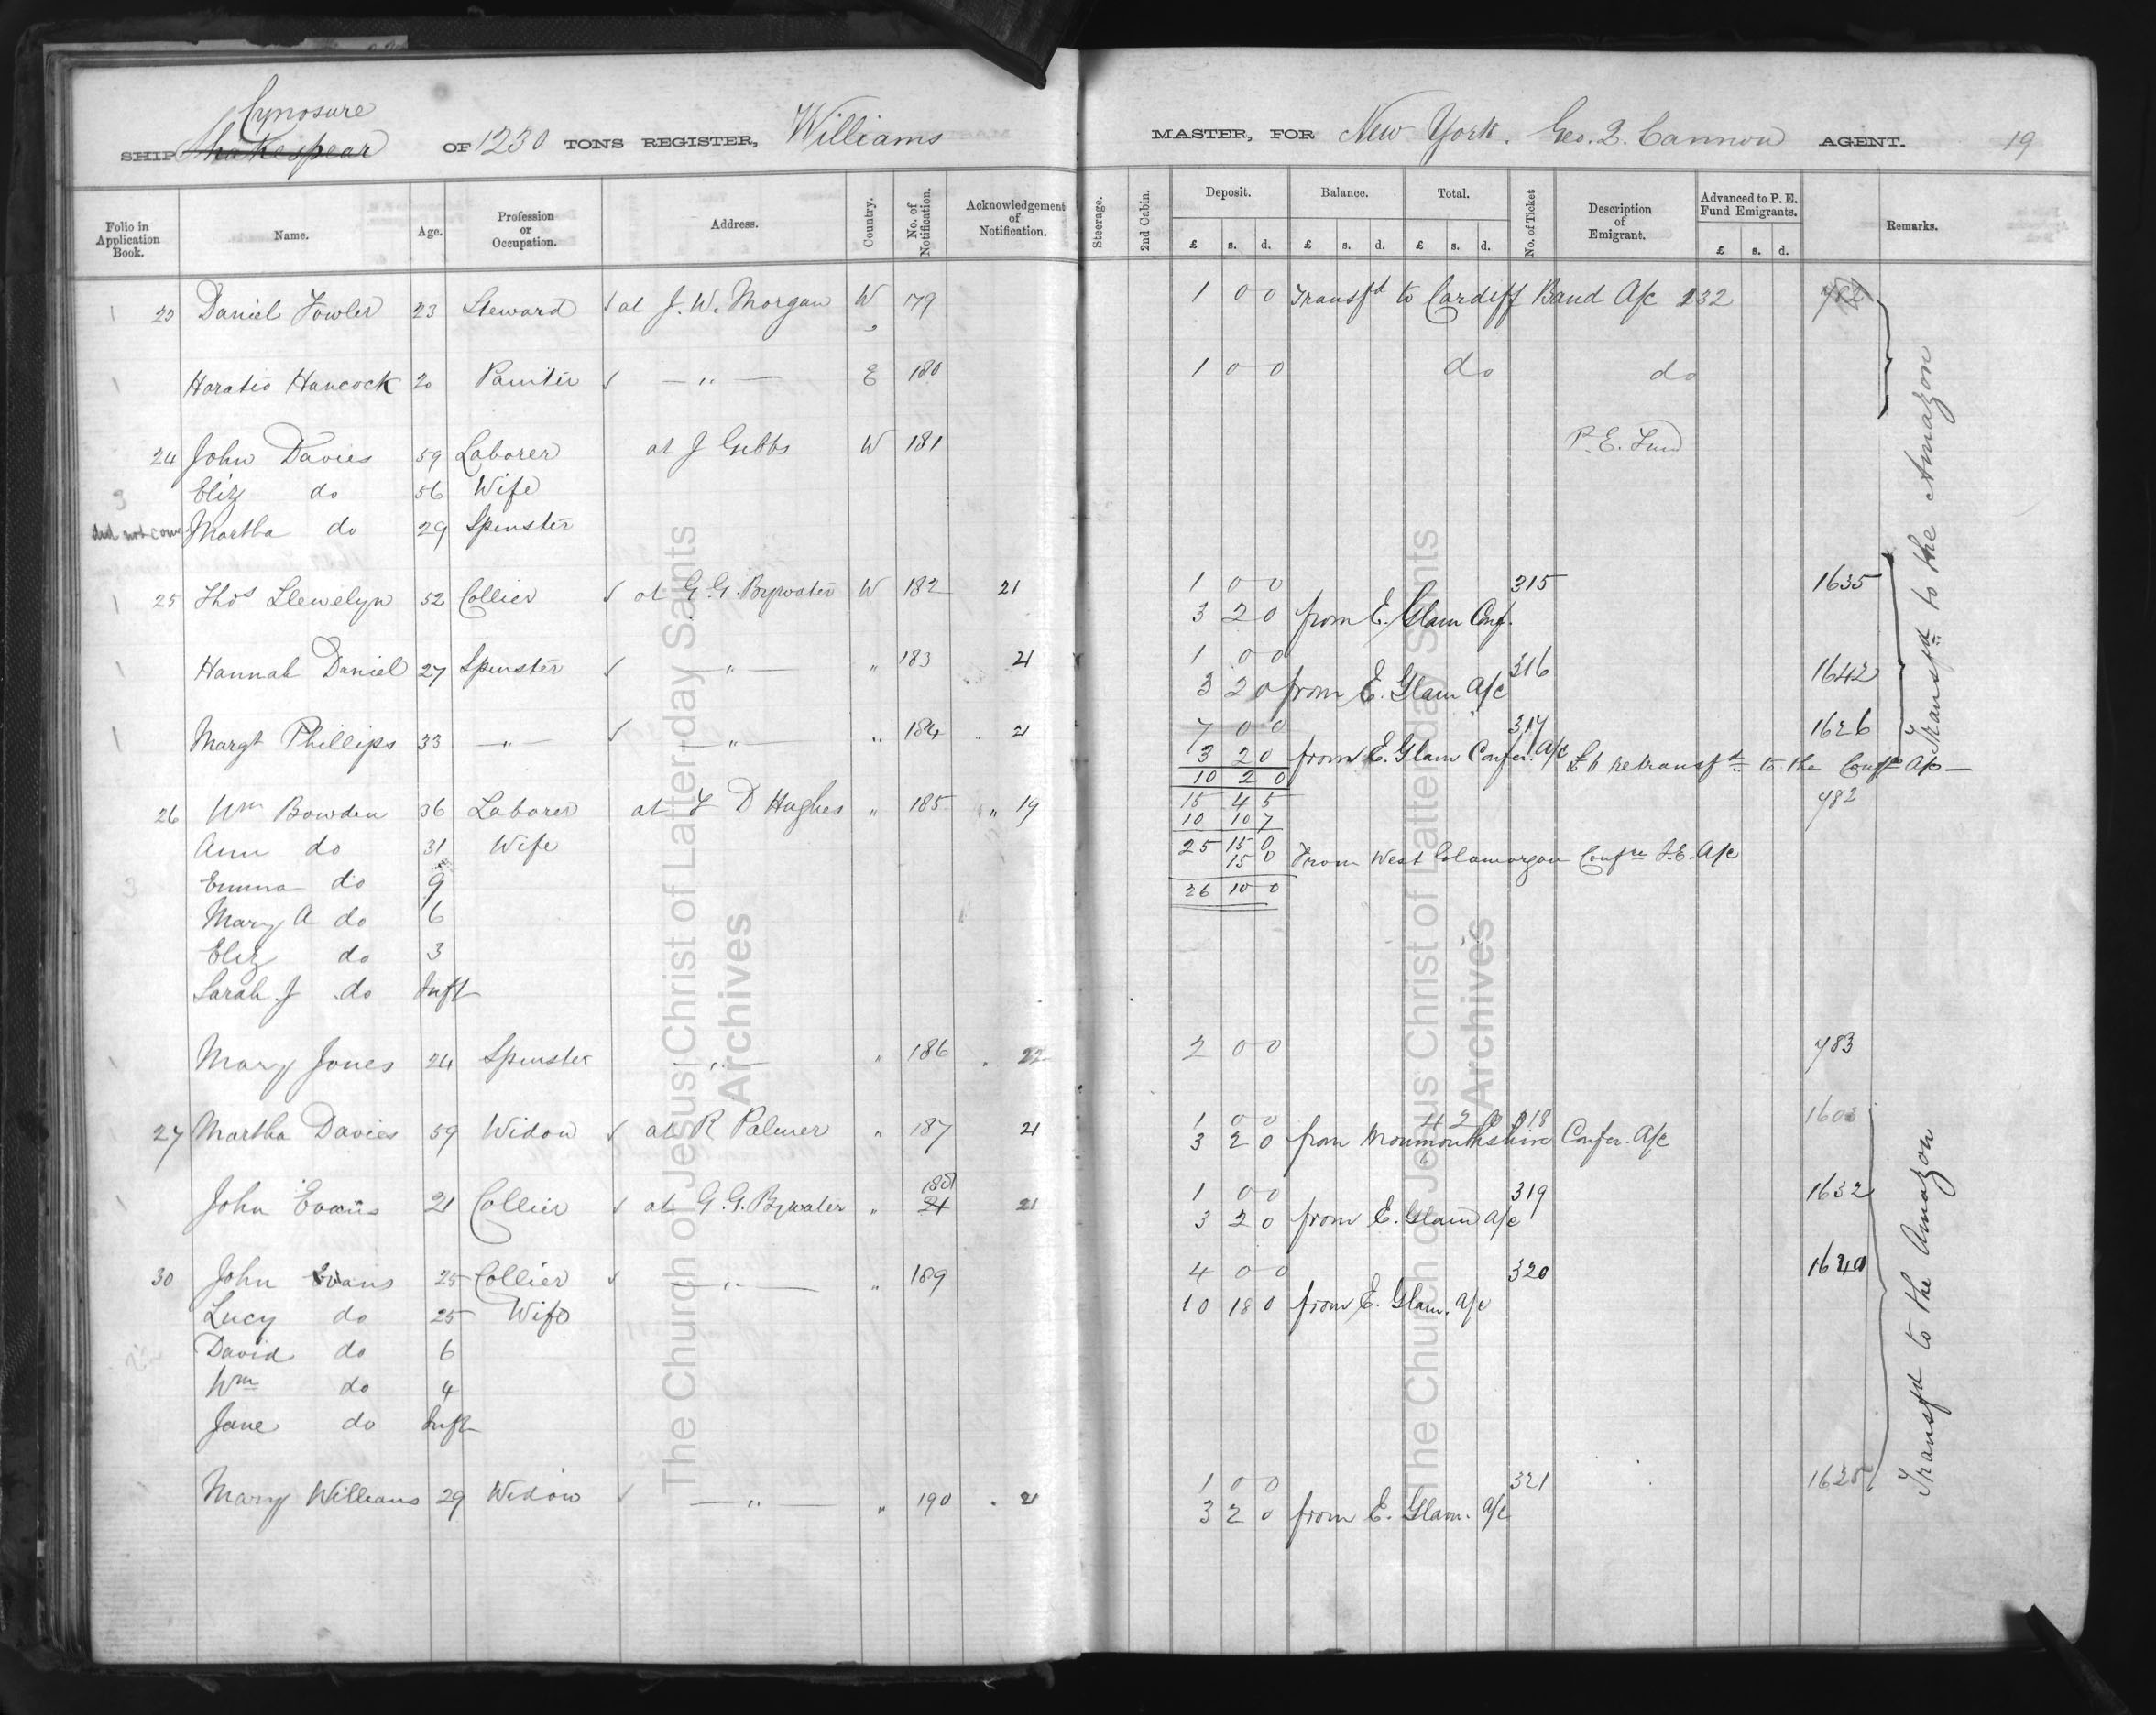 Cynosure
SHIP Shakespear OF 1230 TONS REGISTER, Williams MASTER, FOR New York. Geo. Q. Cannon AGENT. 19
Folio in Application Book. Name. Age. Profession or Occupation. Address. Country. No. of Notification. Acknowledgement of Notification. Steerage. 2nd Cabin. Deposit. £ s. d. Balance. £ s. d. Total. £ s. d. No. of Ticket Description of Emigrant. Advanced to P. E. Fund Emigrants. £ s. d. Remarks.
1 23 Daniel Fowler 23 Steward at J. W. Morgan W 179 1 0 0 Transfd to Cardiff Band A/c 232
1 Horatio Hancock 20 Painter — " — E 180 1 0 0 do do
24 John Davies 59 Laborer at J Gibbs W 181 P. E. Fund
3 Eliz do 56 Wife
did not come Martha do 29 Spinster
1 25 Thos Llewelyn 52 Collier at G. G. Bywater W 182 21 1 0 0 315 1635
3 2 0 from E. Glam Conf.
1 Hannah Daniel 27 Spinster — " — " 183 21 1 0 0 316 1642
3 2 0 from E. Glam A/c
1 Margt Phillips 33 — " — — " — " 184 21 7 0 0 317 1626
3 2 0 from E. Glam Confer. A/c £6 retransfd to the Confe A/c —
10 2 0
26 Wm Bowden 36 Laborer at T D Hughes " 185 " 19 15 4 5 782
10 10 7
Ann do 31 Wife 25 15 0
15 0 From West Glamorgan Confce I.E. A/c
3 Emma do 9 26 10 0
Mary A do 6
Eliz do 3
Sarah J do Inft
Mary Jones 24 Spinster — " — " 186 22 2 0 0 783
27 Martha Davies 59 Widow at R Palmer " 187 21 1 0 0 4 2 0 318 1603
3 2 0 from Monmouthshire Confer. A/c
188
John Evans 21 Collier at G. G. Bywater " 21 21 1 0 0 319 1632
3 2 0 from E. Glam A/c
30 John Evans 25 Collier — " — " 189 4 0 0 320 1640
Lucy do 25 Wife 10 18 0 from E. Glam. A/c
David do 6
Wm do 4
Jane do Inft
Mary Williams 29 Widow — " — " 190 21 1 0 0 321 1625
3 2 0 from E. Glam. A/c
Transfd to the Amazon
Transfd to the Amazon
The Church of Jesus Christ of Latter-day Saints
Archives
The Church of Jesus Christ of Latter-day Saints
Archives